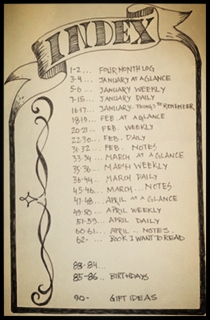 INDEX
1-2... FOUR MONTH LOG
3-4... JANUARY AT A GLANCE
5-6... JANUARY WEEKLY
7-15... JANUARY DAILY
16-17... JANUARY THINGS TO REMEMBER
18-19... FEB. AT A GLANCE
20-21... FEB. WEEKLY
22-30... FEB. DAILY
31-32... FEB. NOTES
33-34... MARCH AT A GLANCE
35-36... MARCH WEEKLY
36-44... MARCH DAILY
45-46... MARCH... NOTES
47-48... APRIL AT A GLANCE
49-50... APRIL WEEKLY
51-59... APRIL DAILY
60-61... APRIL.. NOTES.
62-... BOOK I WANT TO READ
83-84...
85-86.. BIRTHDAYS
90- GIFT IDEAS